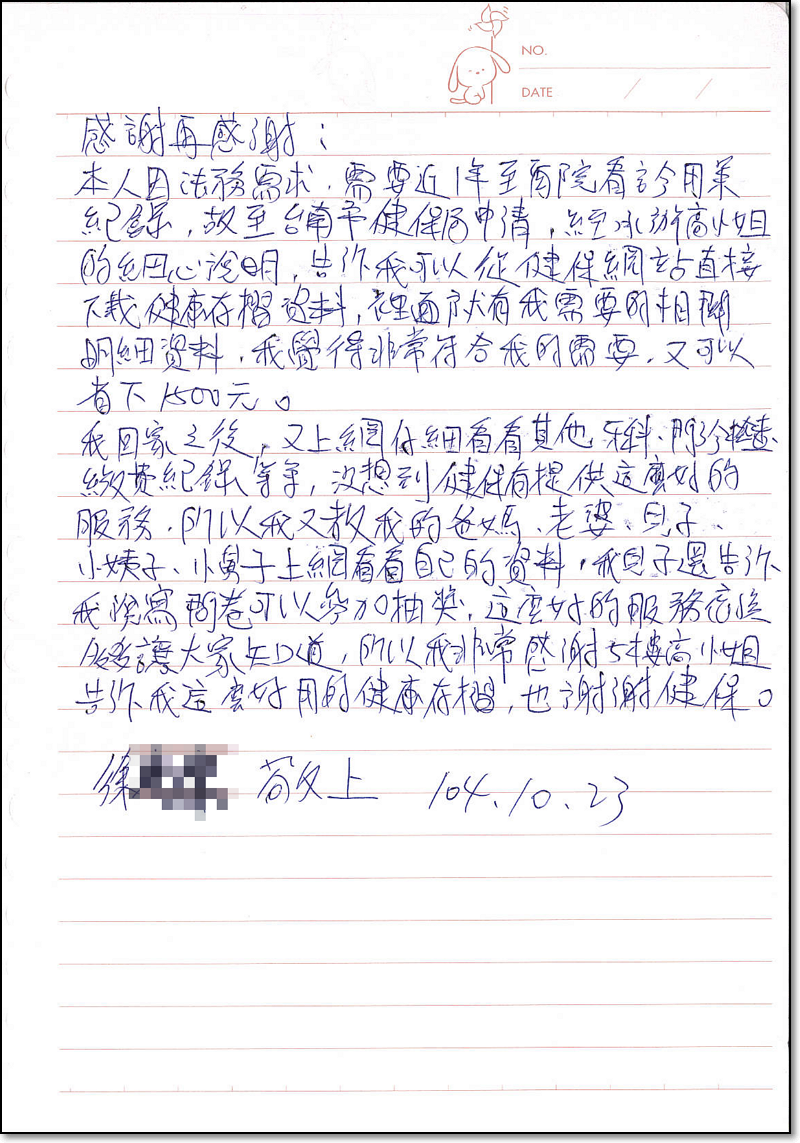 NO.
DATE / /
感謝再感謝：
本人因法務需求，需要近1年至醫院看診用藥
紀錄，故至台南市健保局申請，經承辦高小姐
的細心說明，告訴我可以從健保網站直接
下載健康存摺資料，裡面就有我需要的相關
明細資料，我覺得非常符合我的需要，又可以
省下1500元。
我回家之後，又上網仔細看看其他牙科、門診檢查、
繳費紀錄等等，沒想到健保有提供這麼好的
服務，所以我又教我的爸媽、老婆、兒子、
小姨子、小舅子上網看看自己的資料，我兒子還告訴
我填寫問卷可以參加抽獎，這麼好的服務應該
多多讓大家知道，所以我非常感謝5樓高小姐
告訴我這麼好用的健康存摺，也謝謝健保。
徐 敬上 104.10.23